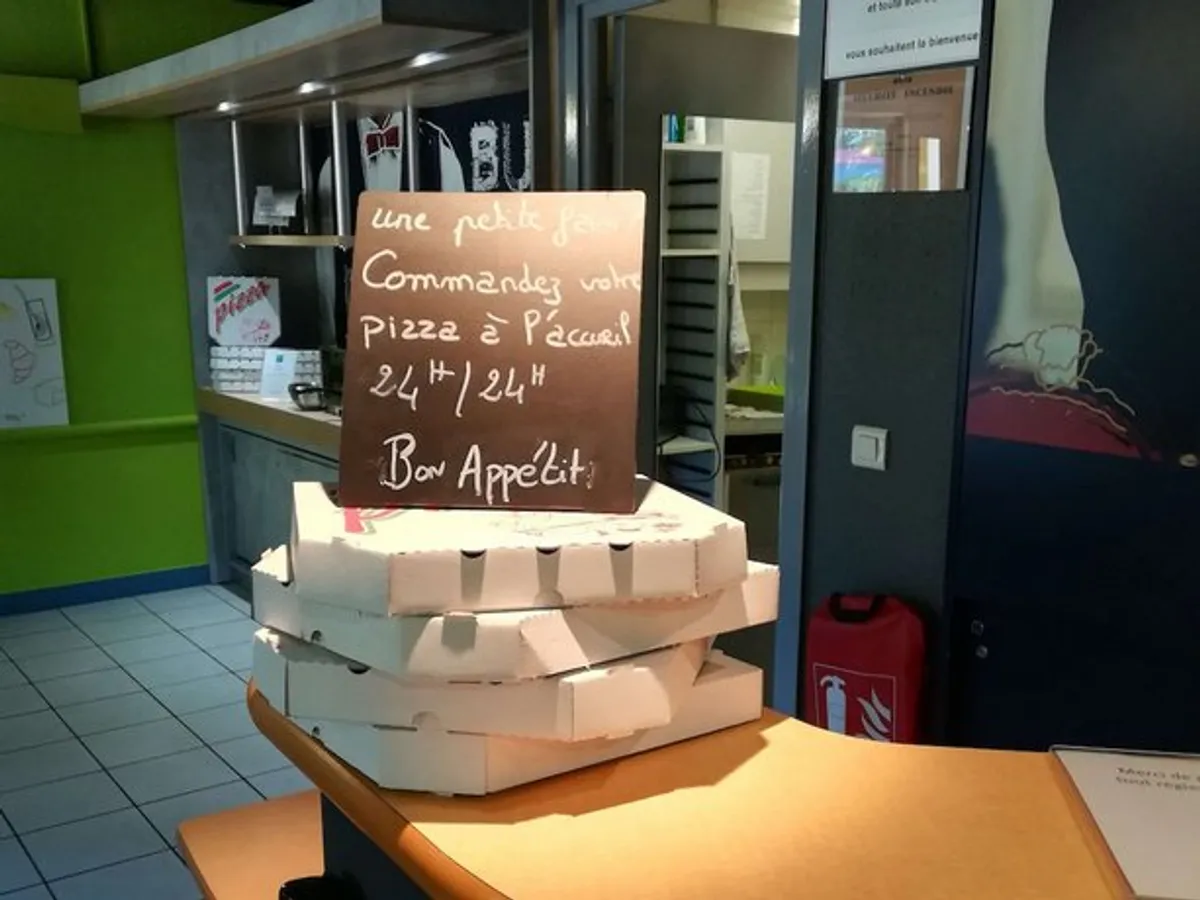 et toute son
vous souhaitent la bienvenue
INCENDIE
BU
pizza
une petite
Commandez votre
pizza à l'accueil
24H/24H
Bon Appétit
Merci de
tout